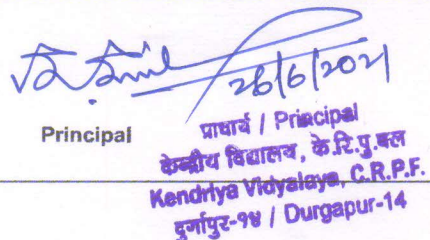 26/6/2021
Principal
प्राचार्य / Principal
केन्द्रीय विद्यालय, के.रि.पु.बल
Kendriya Vidyalaya, C.R.P.F.
दुर्गापुर-१४ / Durgapur-14